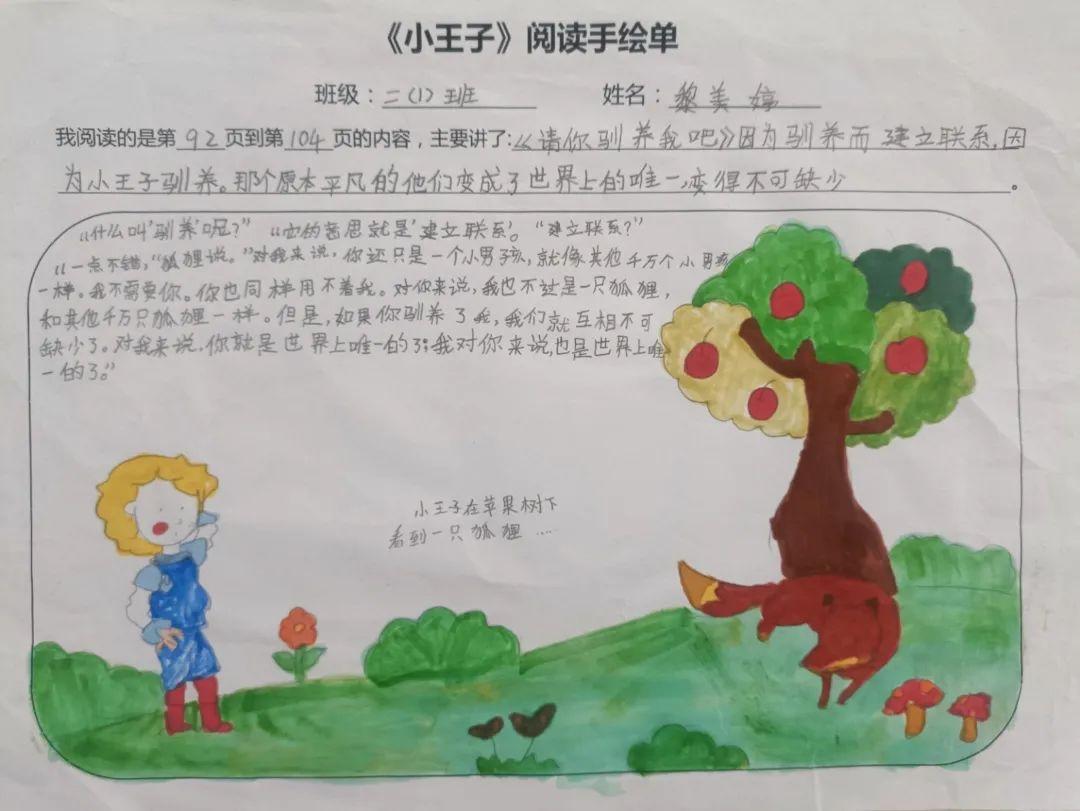 《小王子》阅读手绘单
班级：二（1）班 姓名：黎美婷
我阅读的是第92页到第104页的内容，主要讲了:《请你驯养我吧》因为驯养而建立联系，因
为小王子驯养。那个原本平凡的他们变成了世界上的唯一，变得不可缺少。
“什么叫‘驯养’呢？” “它的意思就是‘建立联系’。 “建立联系？”
“一点不错，“狐狸说。”对我来说，你还只是一个小男孩，就像其他千万个小男孩
一样。我不需要你。你也同样用不着我。对你来说，我也不过是一只狐狸，
和其他千万只狐狸一样。但是，如果你驯养了我，我们就互相不可
缺少了。对我来说，你就是世界上唯一的了；我对你来说，也是世界上唯
一的了。”
小王子在苹果树下
看到一只狐狸……